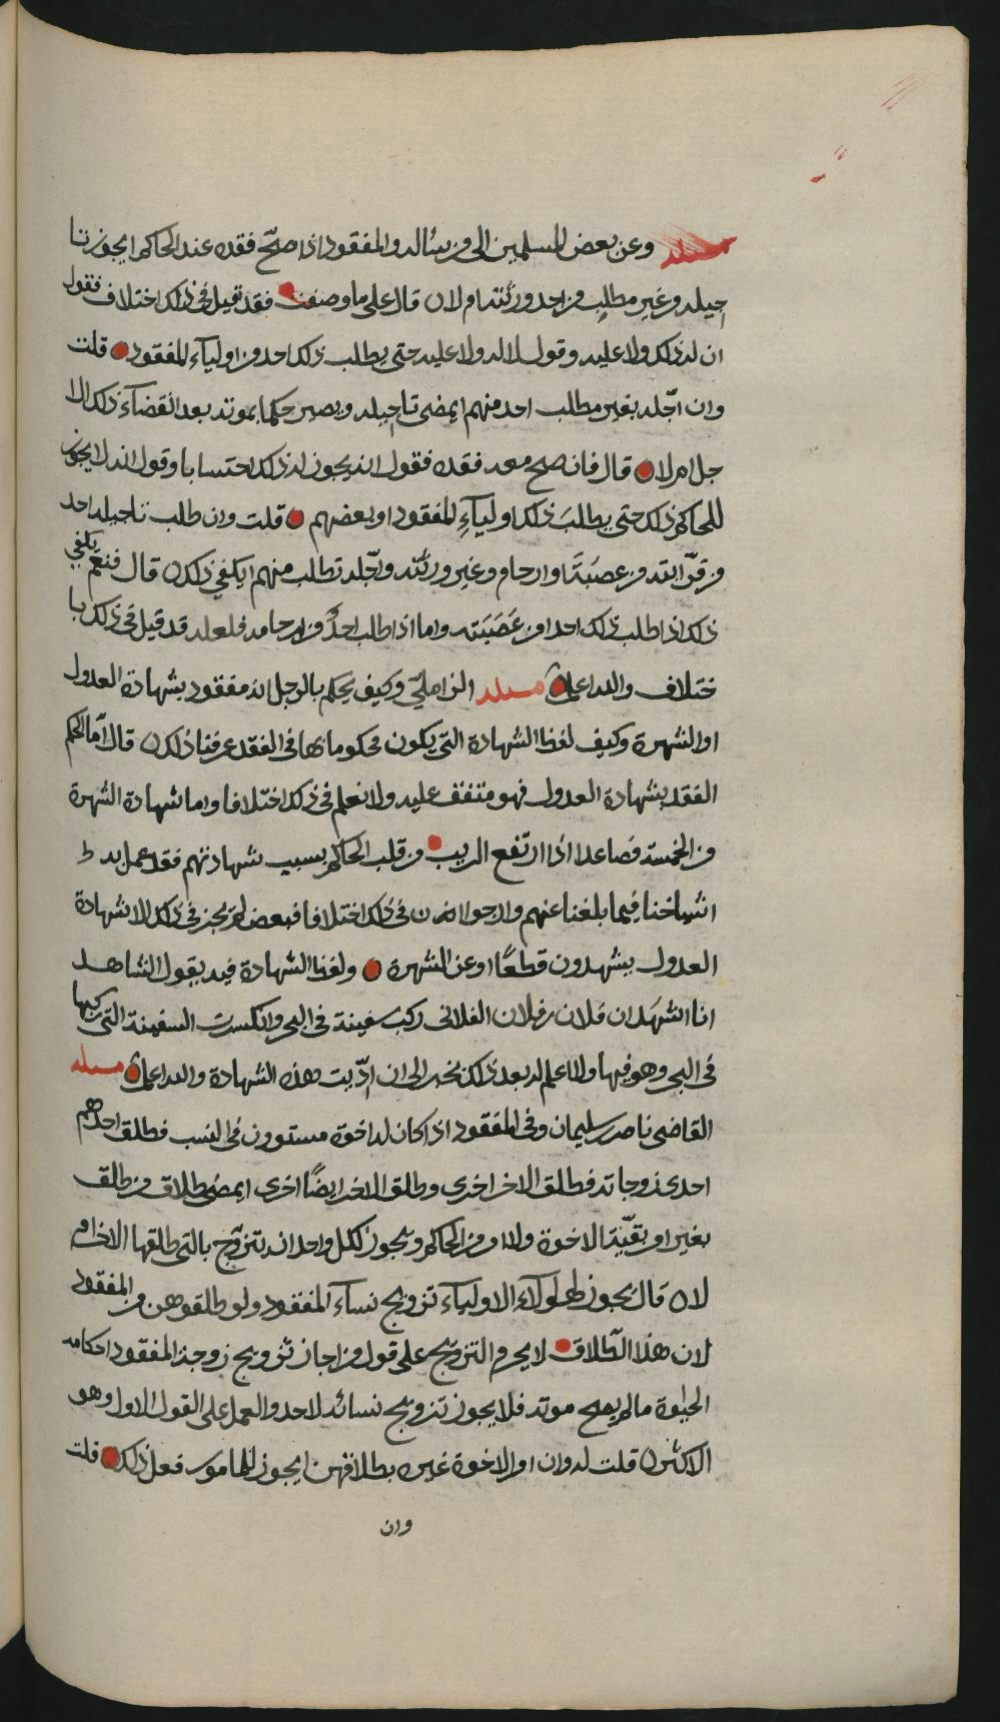 مسئلة وعن بعض المسلمين الى من سئاله والمفقود اذا صحّ فقده عند الحاكم ايجوز تا
جيله من غير مطلب من احد ورثته ام لا ن قال على ما وصفت فقد قيل في ذلك اختلاف فقول
ان له ذلك ولا عليه وقول لا له ولا عليه حتى يطلب ذلك احد من اوليآء المفقود قلت
وان اجّله بغير مطلب احد منهم ايمضى تاجيله ويصير حكما بموته بعد انقضآء ذلك الا
جل ام لا قال فان صح معه فقده فقول انه يجوز له ذلك احتسابا وقول انه لا يجوز
للحاكم ذلك حتى يطلبَ ذلك اوليآءِ المفقود او بعضهم قلت وان طلب تاجيله احد
من قرابته من عصبَةَ وارحام من غير ورثته واجّله بطلب منهم ايكفي ذلك ن قال فنعم يكفي
ذلك اذا طلب ذلك احدا من عَصَبَته واما اذا طلب احدٌ من ارحامه فلعله قد قيل في ذلك با
ختلاف والله اعلم مسئلة الزاملي وكيف يحكم بالرجل انه مفقود بشهادة العدول
او الشهرة وكيف لفظ الشهادة التي يكون محكوما بها في الفقد عرفنا ذلك ن قال اما الحكم
الفقد بشهادة العدول فهو متفق عليه ولا نعلم في ذلك اختلافا واما شهادة الشهرة
من الخمسة فصاعدا اذا ارتفع الريب من قلب الحاكم بسبب شهادتهم فقد عمل به
اشياخنا فيما بلغنا عنهم وارجوا ان في ذلك اختلافا فبعض لم يجز في ذلك الا شهادة
العدول يشهدون قطعًا او عن الشهرة ولفظ الشهادة فيه يقول الشاهد
انا اشهَد ان فلان بن فلان الفلاني ركب سفينة في البحر وانكسرت السفينة التي ركبها
في البحر وهو فيها ولا اعلم له بعد ذلك بخبر الى ان ادّيت هذه الشهادة والله اعلم مسئلة
القاضي ناصر بن سليمان وفي المفقود اذا كان له اخوة مستوون في النسب فطلق احدهم
احدى زوجاته فطلق الاخر اخرى وطلق الاخر ايضًا اخرى ايمضى طلاق من طلق
بغير امر بقيّة الاخوة ولا امر من الحاكم ويجوز لكل واحد ان يتزوج بالتي طلقها الاخر ام
لا ن قال يجوز لهولآء الاوليآء تزويج نسآء المفقود ولو طلقوهن من المفقود
لان هذا الطلاق لا يحرم التزويج على قول من اجاز تزويج زوجة المفقود احكامه
الحيٰوة ما لم يصح موته فلا يجوز تزويج نسائه لاحد والعمل على القول الاول وهو
الاكثر ن قلت له وان امر الاخوة غيره بطلاقهن ايجوز للمامور فعل ذلك قلت
وان